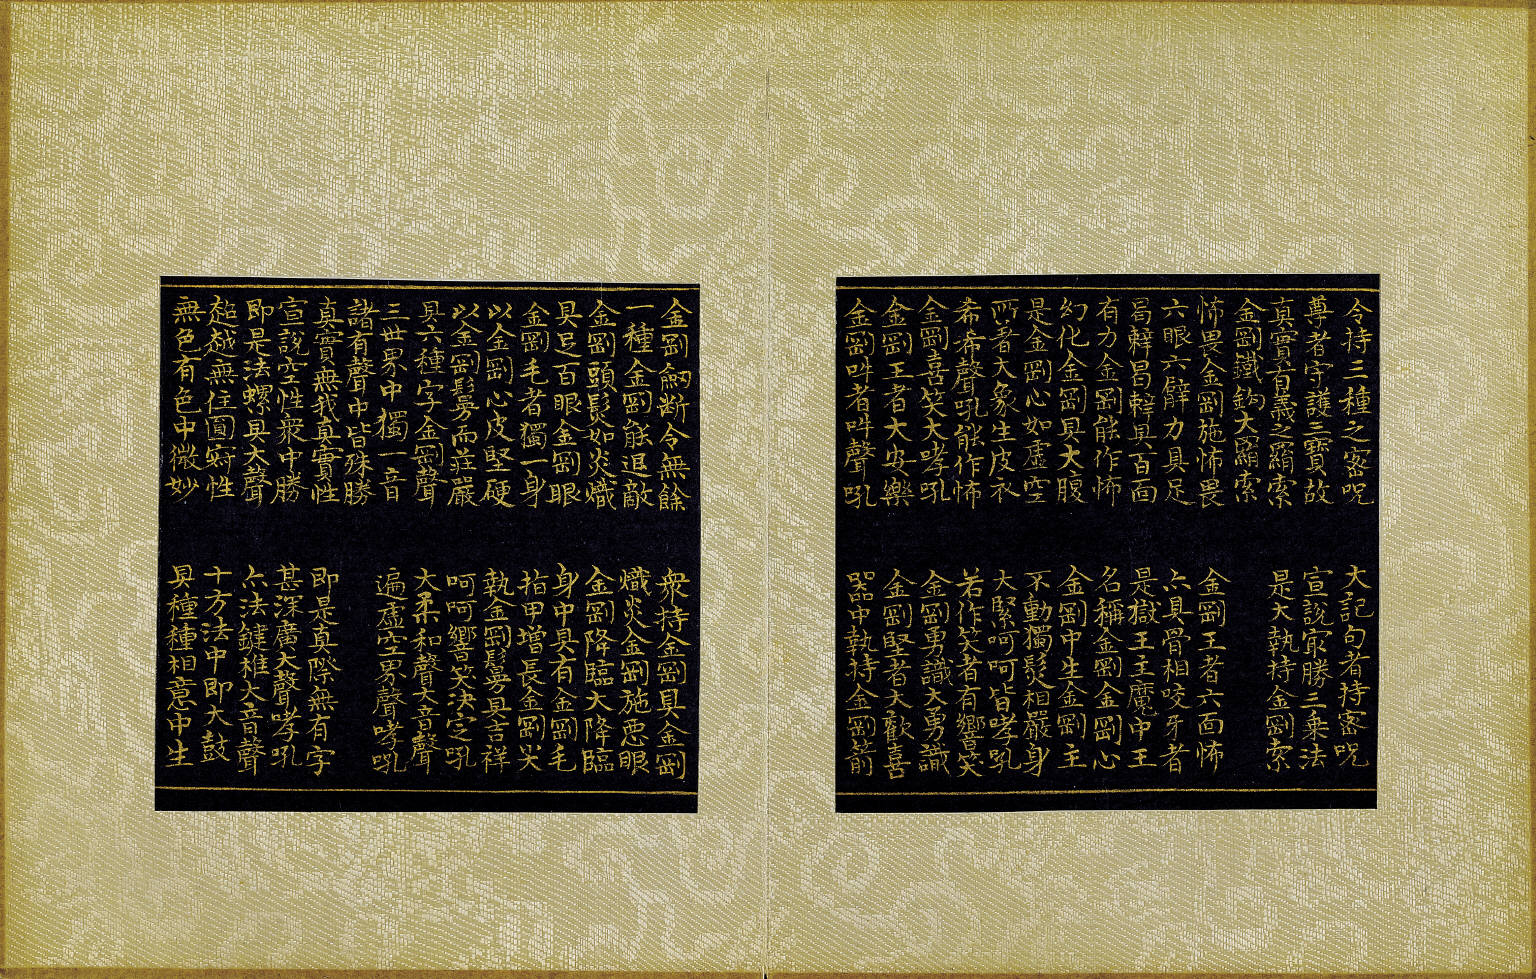 令持三種之密呪 大記句者持密呪
尊者守護三寶故 宣說㝡勝三乗法
真實有義之羂索 是大執持金剛索
金剛鐵鈎大羂索
怖畏金剛施怖畏 金剛王者六面怖
六眼六臂力具足 亦具骨相咬牙者
曷辢曷辢具百面 是獄王主魔中王
有力金剛能作怖 名稱金剛金剛心
幻化金剛具大腹 金剛中生金剛主
是金剛心如虛空 不動獨髮相嚴身
所著大象生皮衣 大緊呵呵皆哮吼
希希聲吼能作怖 若作笑者有響笑
金剛喜笑大哮吼 金剛勇識大勇識
金剛王者大安樂 金剛堅者大歡喜
金剛吽者吽聲吼 器中執持金剛箭
金剛劒断令無餘 衆持金剛具金剛
一種金剛能退敵 熾炎金剛施惡眼
金剛頭髮如炎熾 金剛降臨大降臨
具足百眼金剛眼 身中具有金剛毛
金剛毛者獨一身 指甲增長金剛尖
以金剛心皮堅硬 執金剛鬘具吉祥
以金剛鬘而莊嚴 呵呵響笑決定吼
具六種字金剛聲 大柔和聲大音聲
三世界中獨一音 遍虛空界聲哮吼
諸有聲中皆殊勝
真實無我真實性 即是真際無有字
宣說空性衆中勝 甚深廣大聲哮吼
即是法螺具大聲 亦法鍵椎大音聲
超越無住圓寂性 十方法中即大鼓
無色有色中微妙 具種種相意中生